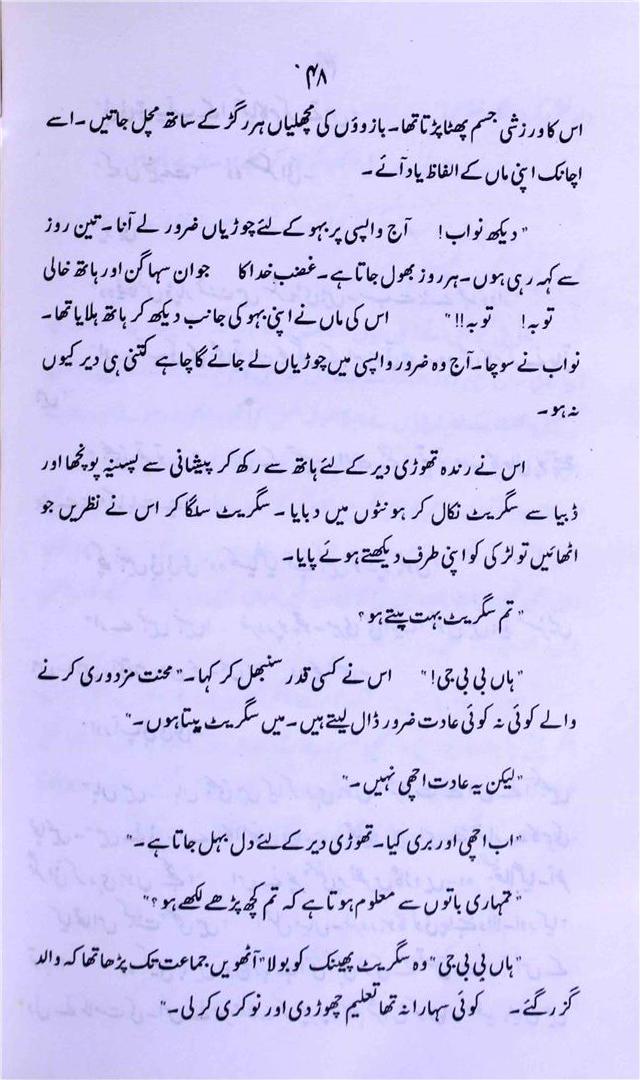 ۴۸
اس کا ورزشی جسم پھٹا پڑتا تھا۔ بازوؤں کی مچھلیاں ہر رگڑ کے ساتھ مچل جاتیں۔ اسے
اچانک اپنی ماں کے الفاظ یاد آئے۔
"دیکھ نواب! آج واپسی پر بہو کے لئے چوڑیاں ضرور لے آنا۔ تین روز
سے کہہ رہی ہوں۔ ہر روز بھول جاتا ہے۔ غضب خدا کا جوان سہاگن اور ہاتھ خالی
توبہ! توبہ!!" اس کی ماں نے اپنی بہو کی جانب دیکھ کر ہاتھ ہلایا تھا۔
نواب نے سوچا۔ آج وہ ضرور واپسی میں چوڑیاں لے جائے گا چاہے کتنی ہی دیر کیوں
نہ ہو۔
اس نے رندہ تھوڑی دیر کے لئے ہاتھ سے رکھ کر پیشانی سے پسینہ پونچھا اور
ڈبیا سے سگریٹ نکال کر ہونٹوں میں دبایا۔ سگریٹ سلگا کر اس نے نظریں جو
اٹھائیں تو لڑکی کو اپنی طرف دیکھتے ہوئے پایا۔
"تم سگریٹ بہت پیتے ہو؟
"ہاں بی بی جی!" اس نے کسی قدر سنبھل کر کہا۔ "محنت مزدوری کرنے
والے کوئی نہ کوئی عادت ضرور ڈال لیتے ہیں۔ میں سگریٹ پیتا ہوں۔"
"لیکن یہ عادت اچھی نہیں۔"
"اب اچھی اور بری کیا۔ تھوڑی دیر کے لئے دل بہل جاتا ہے۔"
"تمہاری باتوں سے معلوم ہوتا ہے کہ تم کچھ پڑھے لکھے ہو؟"
"ہاں بی بی جی" وہ سگریٹ پھینک کو بولا "آٹھویں جماعت تک پڑھا تھا کہ والد
گزر گئے۔ کوئی سہارا نہ تھا تعلیم چھوڑ دی اور نوکری کر لی۔"